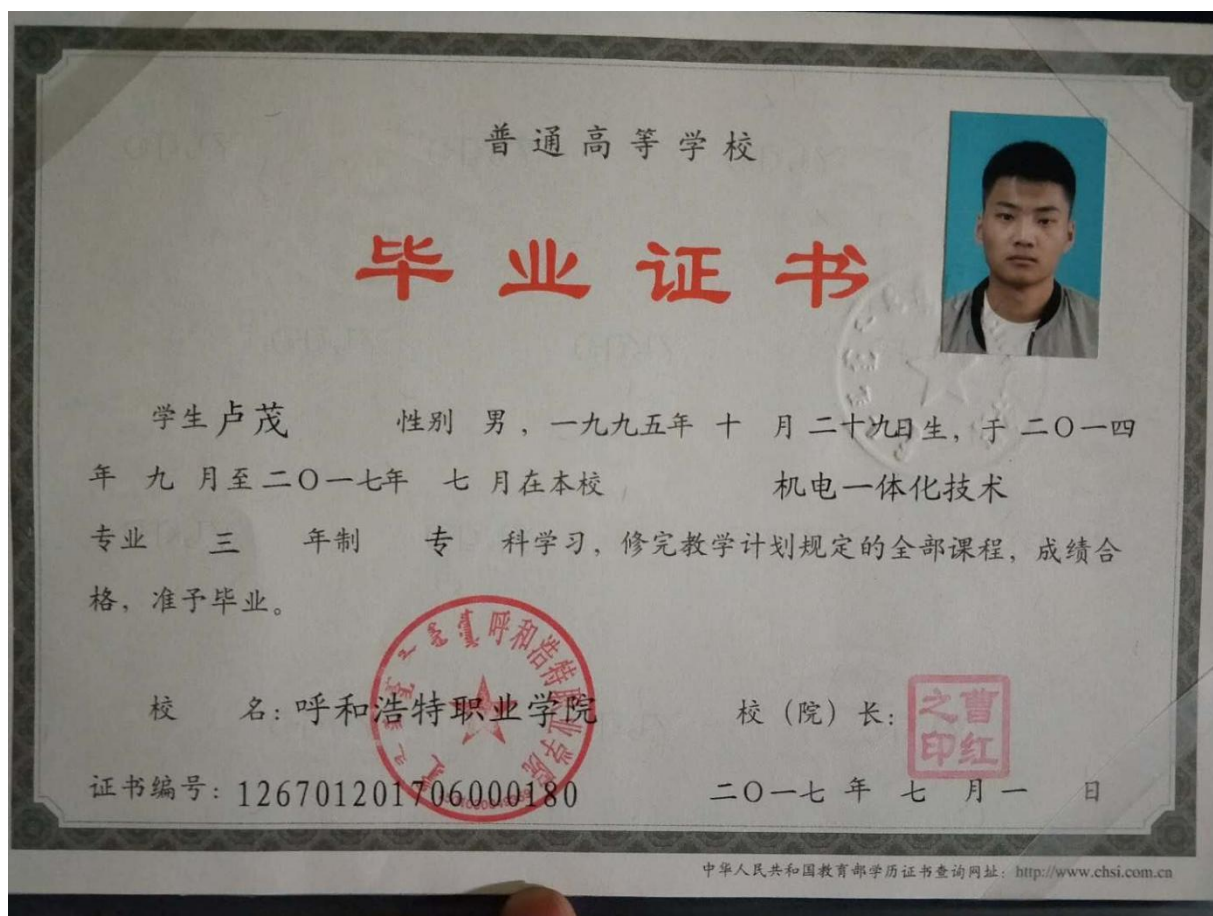 普通高等学校
毕业证书
学生卢茂 性别 男，一九九五年 十 月 二十九日生，于 二〇一四
年 九 月至二〇一七年 七 月在本校 机电一体化技术
专业 三 年制 专 科学习，修完教学计划规定的全部课程，成绩合
格，准予毕业。
呼和浩特职业学院
校 名：呼和浩特职业学院 校（院）长：
曹红之印
证书编号：126701201706000180 二〇一七 年 七 月 一 日
中华人民共和国教育部学历证书查询网址：http://www.chsi.com.cn